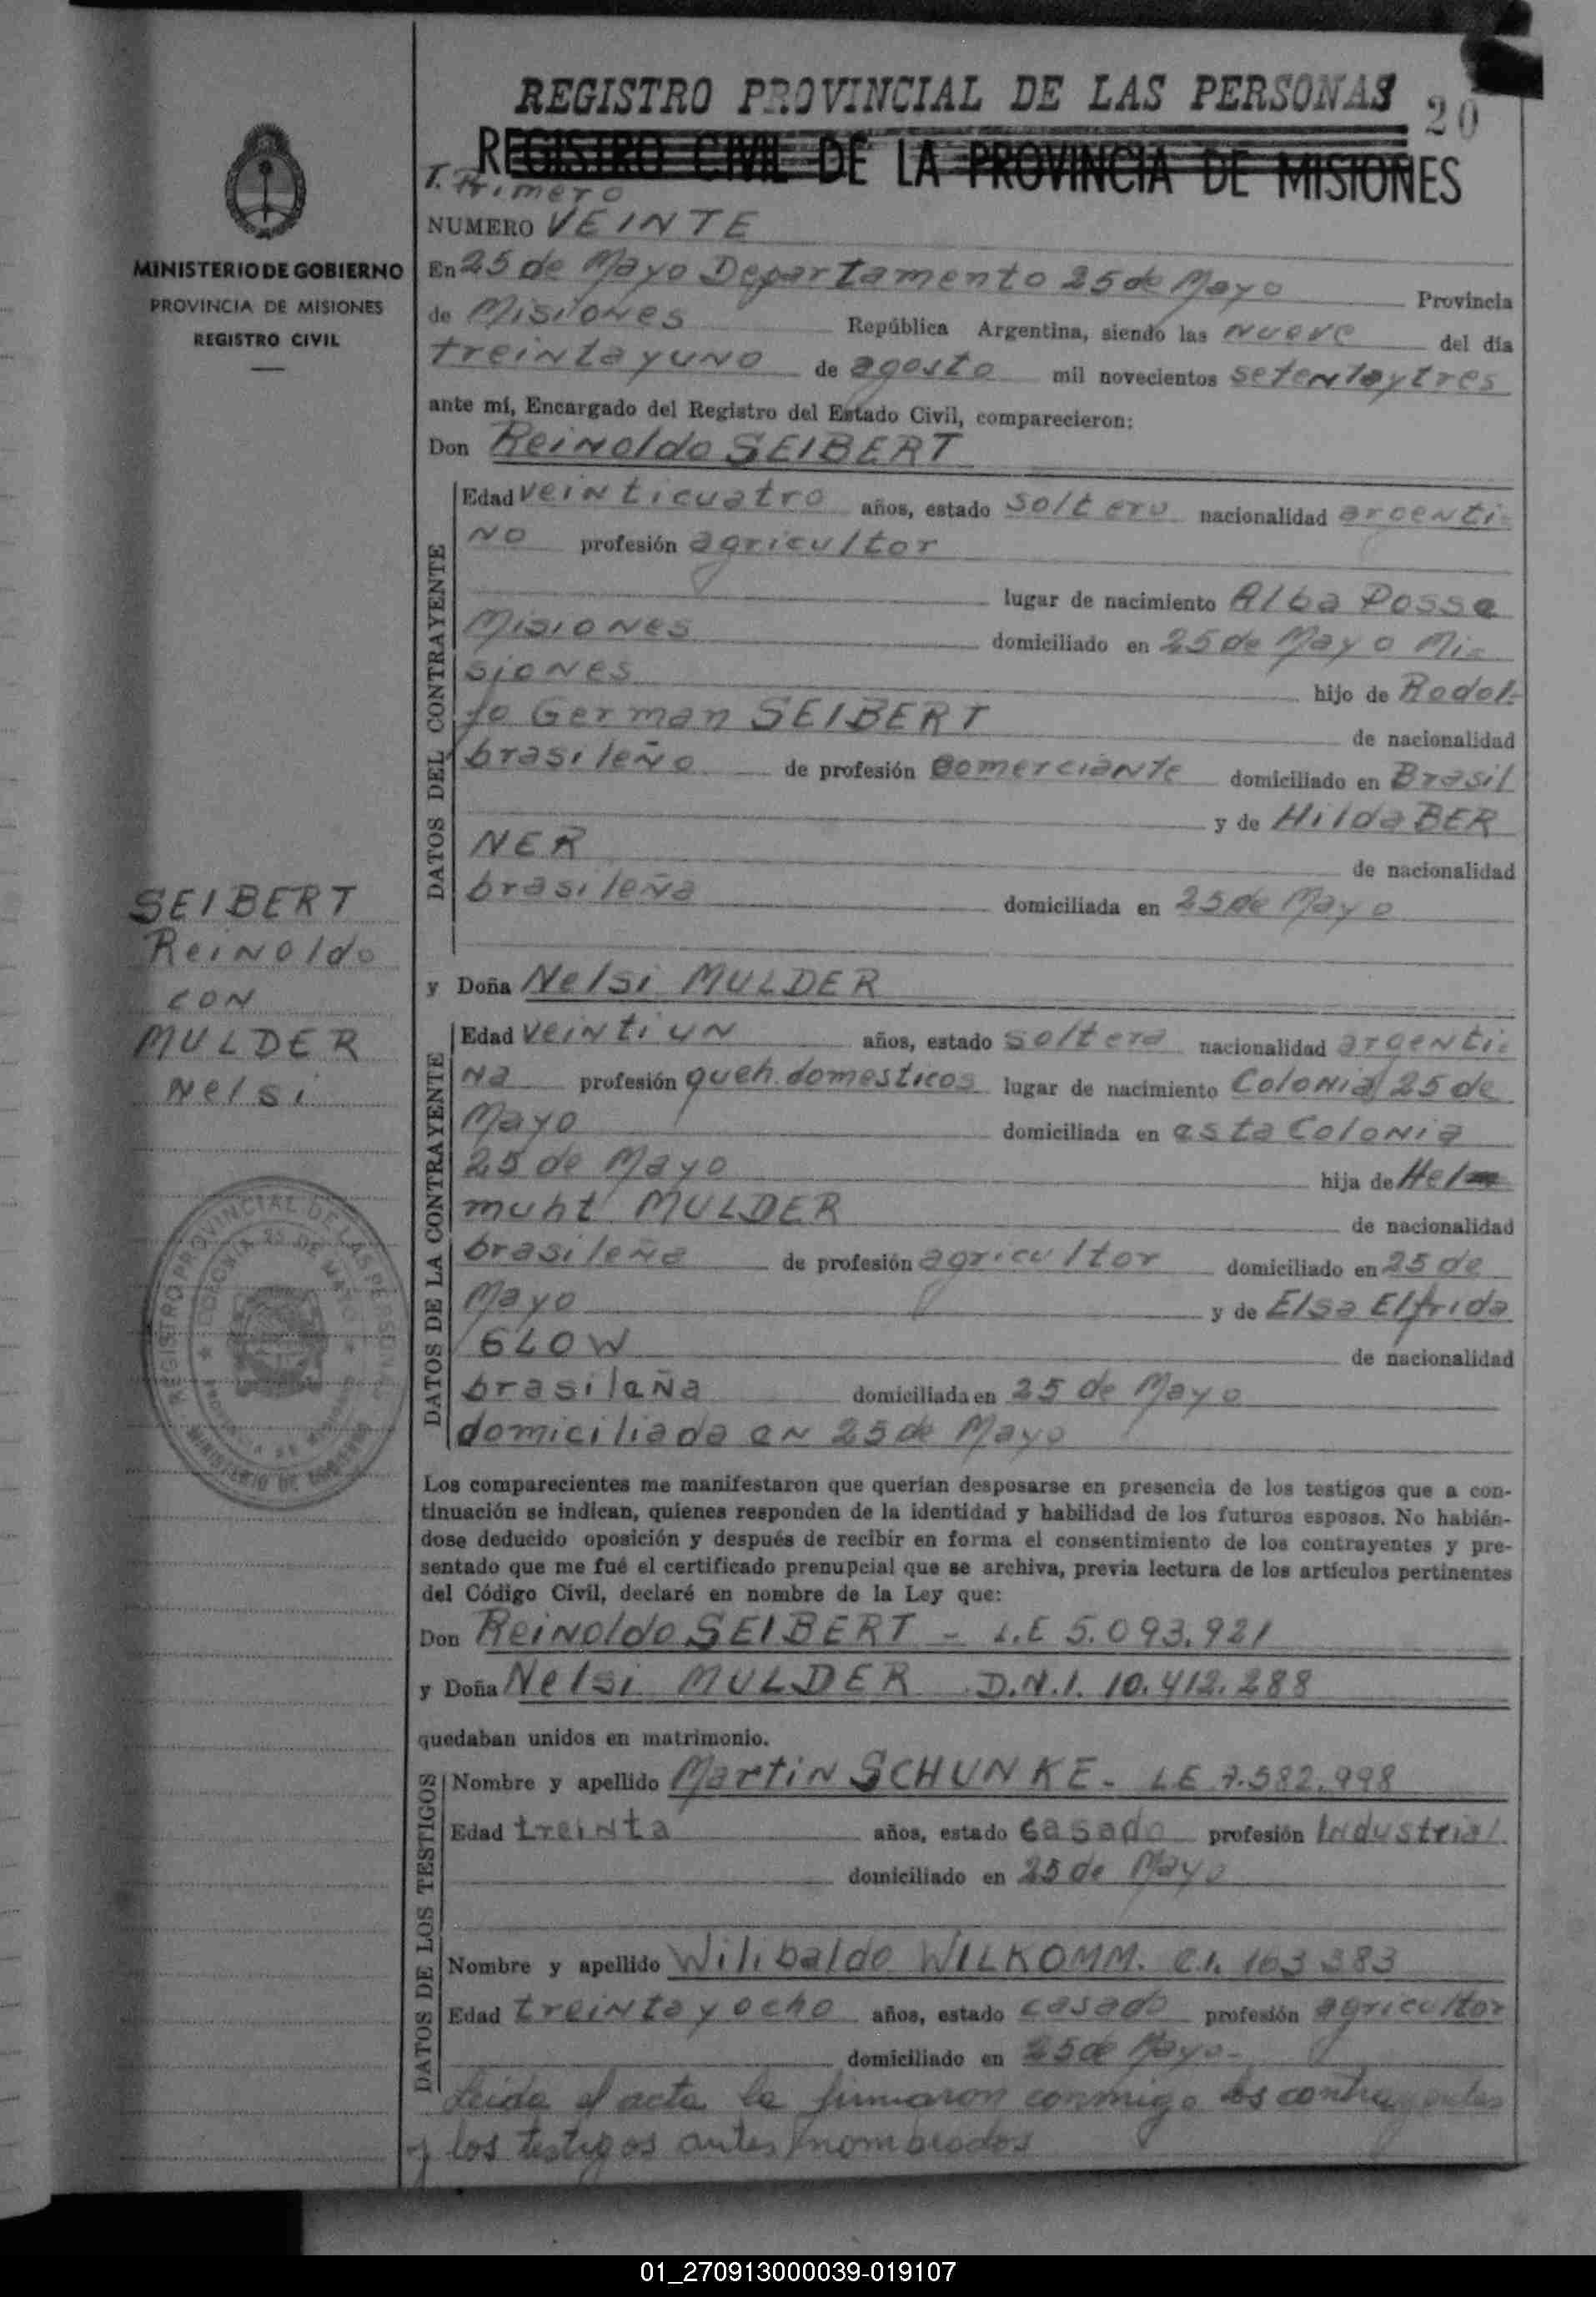 REGISTRO PROVINCIAL DE LAS PERSONAS
20
REGISTRO CIVIL DE LA PROVINCIA DE MISIONES
T. Primero
NUMERO VEINTE
MINISTERIO DE GOBIERNO
PROVINCIA DE MISIONES
REGISTRO CIVIL
En 25 de Mayo Departamento 25 de Mayo Provincia
de Misiones República Argentina, siendo las nueve del día
treinta y uno de agosto mil novecientos setenta y tres
ante mí, Encargado del Registro del Estado Civil, comparecieron:
Don Reinoldo SEIBERT
DATOS DEL CONTRAYENTE
Edad veinticuatro años, estado soltero nacionalidad argenti-
no profesión agricultor
lugar de nacimiento Alba Posse
Misiones domiciliado en 25 de Mayo Mi-
siones hijo de Rodol-
fo German SEIBERT de nacionalidad
brasileño de profesión comerciante domiciliado en Brasil
y de Hilda BER
NER de nacionalidad
brasileña domiciliada en 25 de Mayo
SEIBERT
Reinoldo
CON
MULDER
Nelsi
y Doña Nelsi MULDER
DATOS DE LA CONTRAYENTE
Edad veintiun años, estado soltera nacionalidad argenti-
na profesión queh. domesticos lugar de nacimiento Colonia 25 de
Mayo domiciliada en esta Colonia
25 de Mayo hija de Hel
muht MULDER de nacionalidad
brasileña de profesión agricultor domiciliado en 25 de
Mayo y de Elsa Elfrida
GLOW de nacionalidad
brasileña domiciliada en 25 de Mayo
domiciliada en 25 de Mayo
REGISTRO PROVINCIAL DE LAS PERSONAS
COLONIA 25 DE MAYO
PROVINCIA DE MISIONES
MINISTERIO DE GOBIERNO
Los comparecientes me manifestaron que querían desposarse en presencia de los testigos que a con-
tinuación se indican, quienes responden de la identidad y habilidad de los futuros esposos. No habién-
dose deducido oposición y después de recibir en forma el consentimiento de los contrayentes y pre-
sentado que me fué el certificado prenupcial que se archiva, previa lectura de los artículos pertinentes
del Código Civil, declaré en nombre de la Ley que:
Don Reinoldo SEIBERT - L.E 5.093.921
y Doña Nelsi MULDER D.N.I. 10.412.288
quedaban unidos en matrimonio.
DATOS DE LOS TESTIGOS
Nombre y apellido Martin SCHUNKE - LE 7.582.998
Edad treinta años, estado casado profesión Industrial
domiciliado en 25 de Mayo
Nombre y apellido Wilibaldo WILKOMM. C.I. 163 383
Edad treinta y ocho años, estado casado profesión agricultor
domiciliado en 25 de Mayo-
Leida el acta la firmaron conmigo los contrayentes
y los testigos antes nombrados
01_270913000039-019107